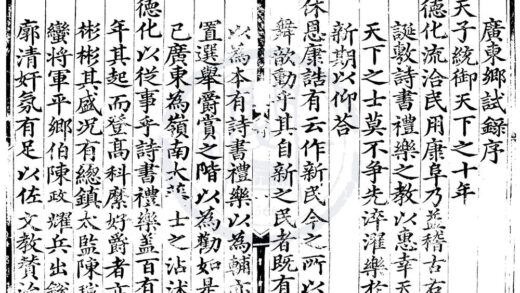 廣東鄉試錄序
天子統御天下之十年
德化流洽民用康阜乃益稽古右
誕敷詩書禮樂之教以惠幸天
天下之士莫不爭先淬濯樂於
新期以仰荅
休恩康誥有云作新民今之所以
舞歆動乎其自新之民者既有
以為本有詩書禮樂以為輔亦
置選舉爵賞之階以為勸如是
已廣東為嶺南大 士之沾沭
德化以從事乎詩書禮樂蓋百有
年其起而登髙科縻好爵者亦
彬彬其盛况有總鎮太監陳瑄
蠻將軍平鄉伯陳政耀兵出
廓清奸氛有足以佐 文教賛治